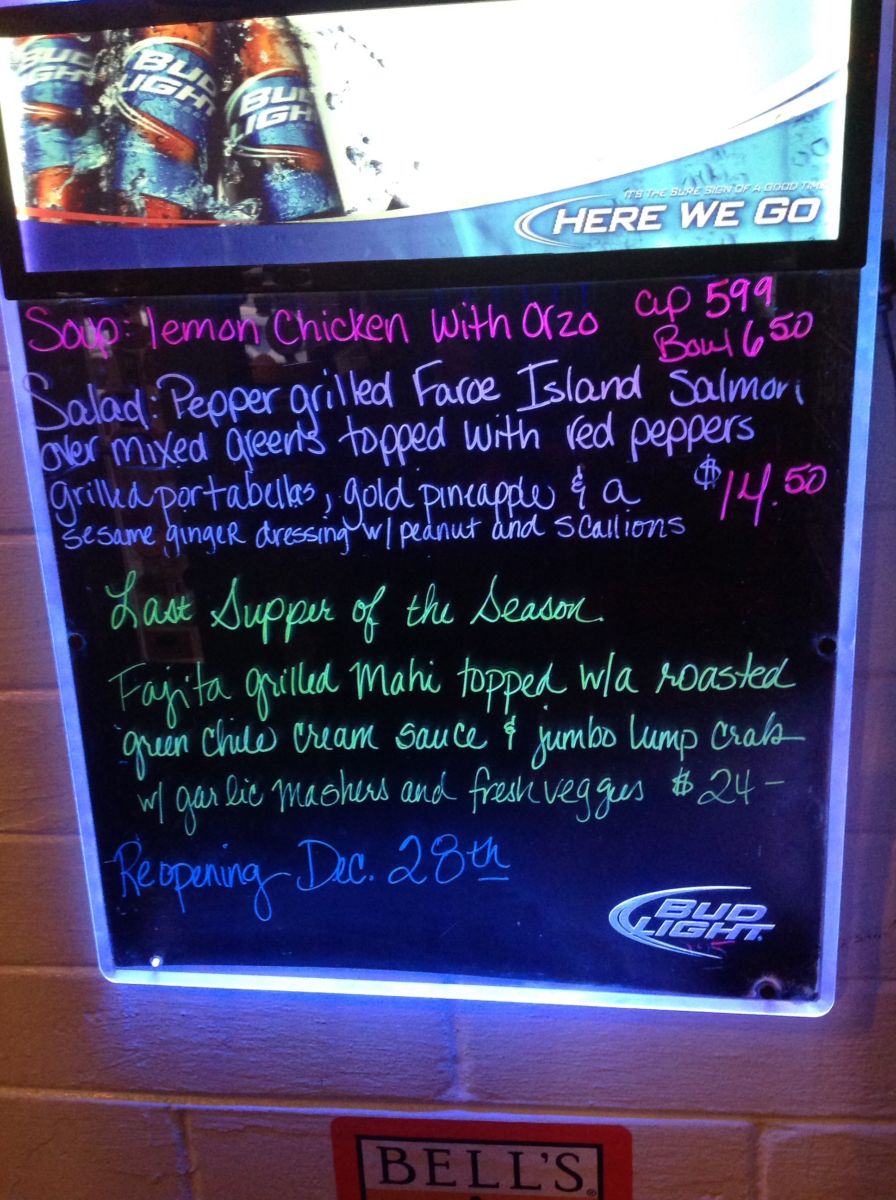 BUD LIGHT
BUD LIGHT
BUD LIGHT
IT'S THE SURE SIGN OF A GOOD TIME
HERE WE GO
Soup: lemon Chicken with Orzo Cup 5 99
Bowl 6 50
Salad: Pepper grilled Faroe Island Salmon,
over mixed greens topped with red peppers
grilled portabellas, gold pineapple & a $14.50
sesame ginger dressing w/ peanut and scallions
Last Supper of the Season.
Fajita grilled Mahi topped w/a roasted
green Chile Cream sauce & jumbo lump Crab
w/ garlic mashers and fresh veggies $24-
Reopening Dec. 28th
BUD
LIGHT.
BELL'S